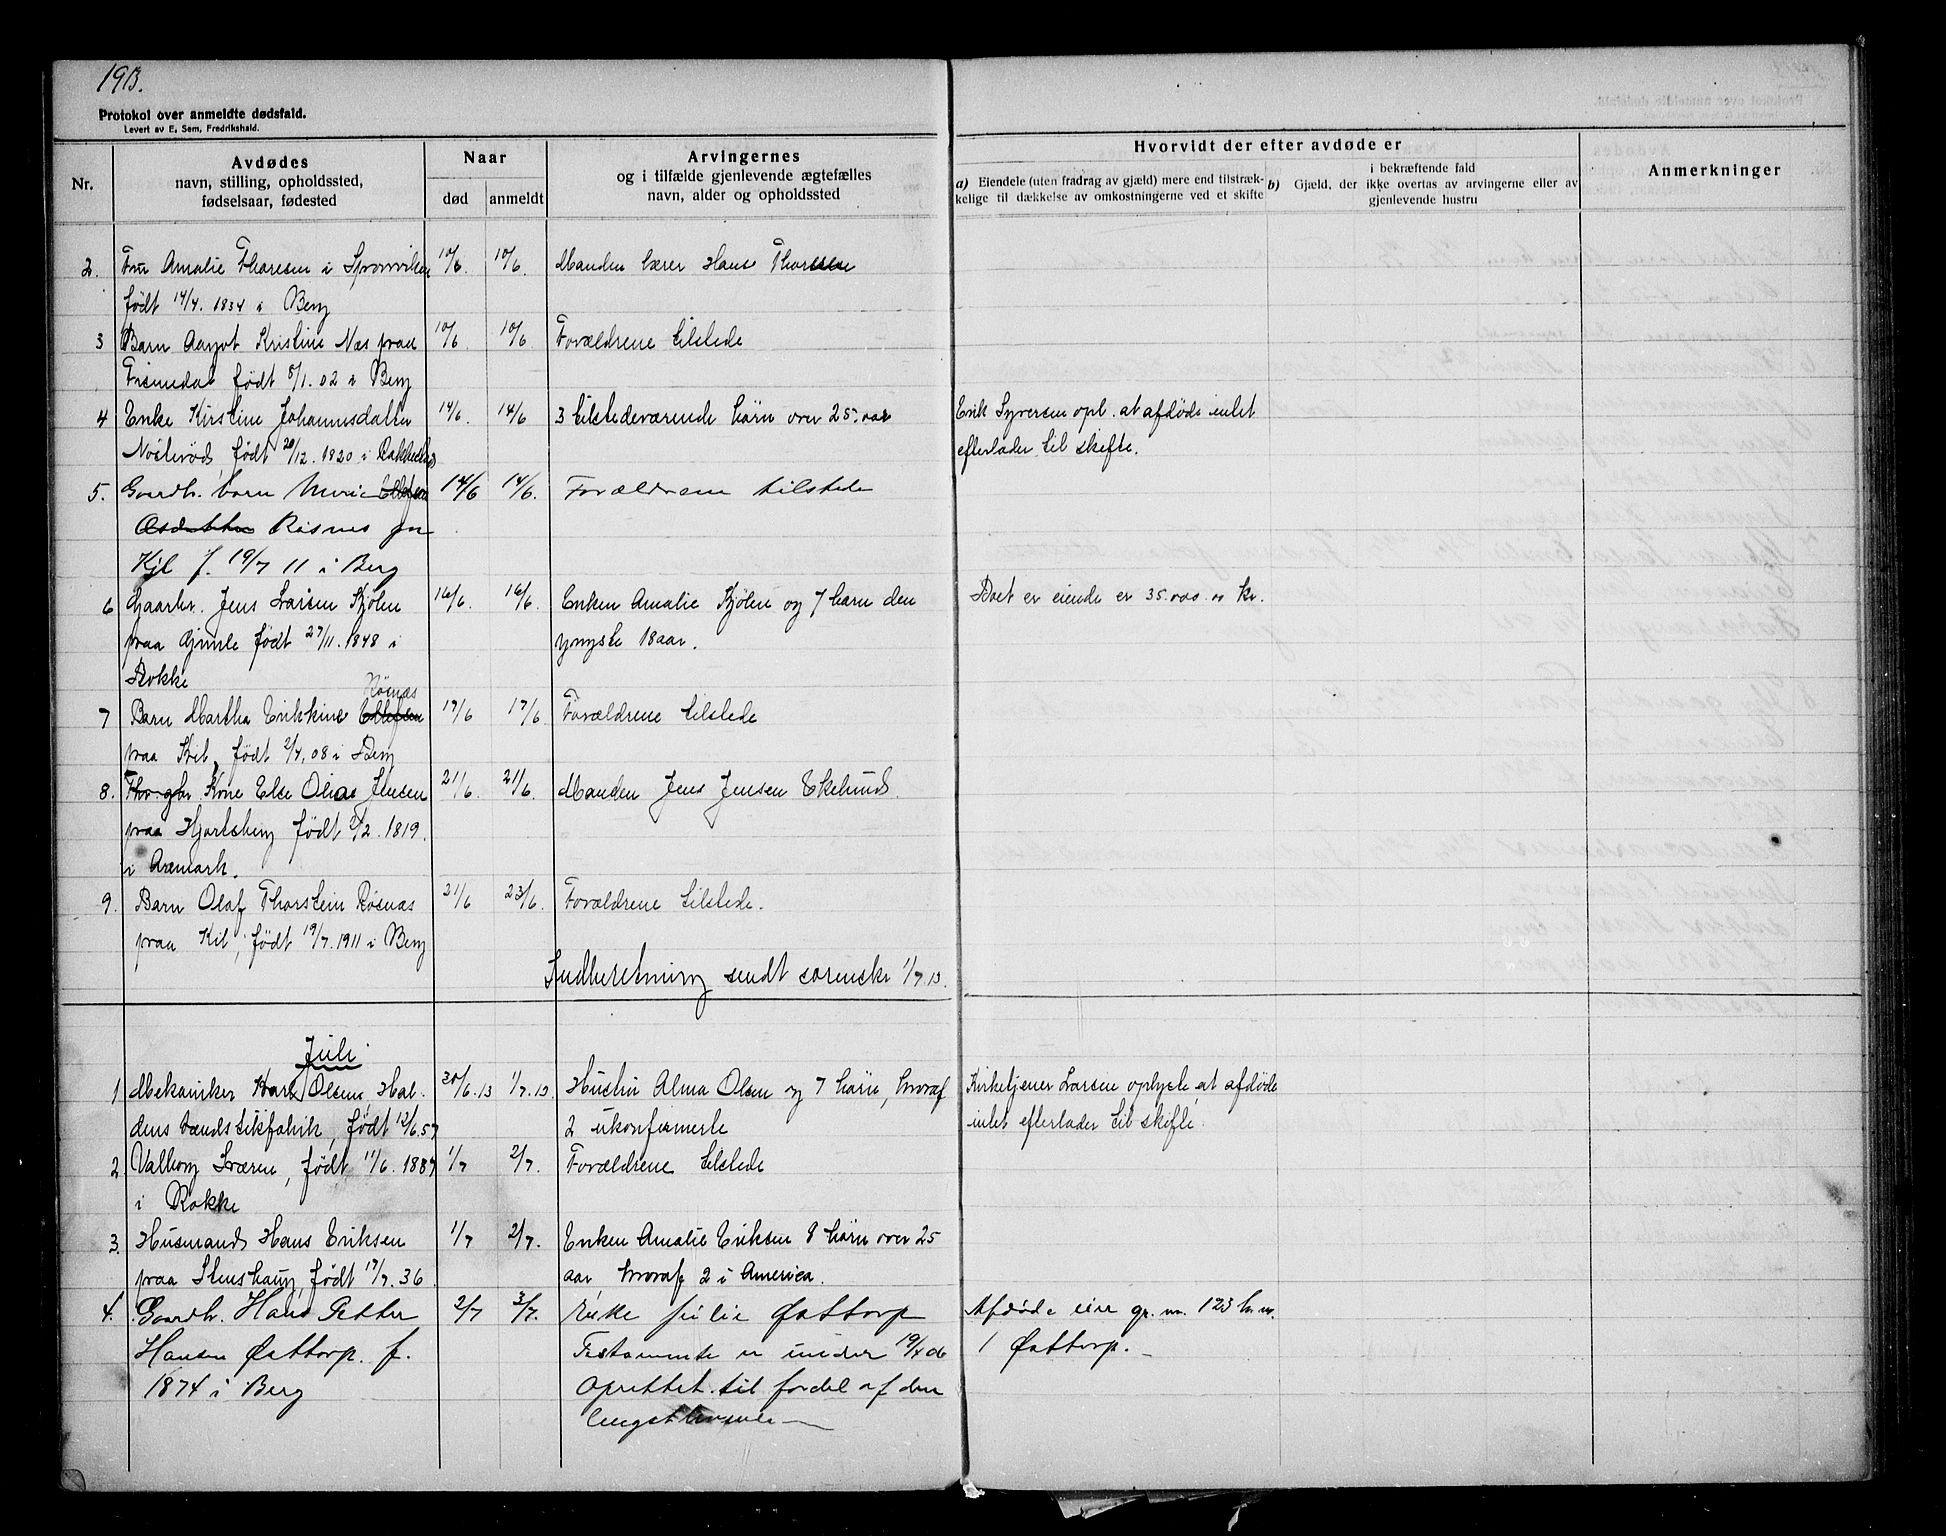 1913.
Protokol over anmeldte dødsfald.
Levert av E. Sem, Fredrikshald.
Nr.
Avdødes
navn, stilling, opholdssted,
fødselsaar, fødested
Naar
død
anmeldt
Arvingernes
og i tilfælde gjenlevende ægtefælles
navn, alder og opholdssted
Hvorvidt der efter avdøde er
a) Eiendele (uten fradrag av gjæld) mere end tilstræk-
kelige til dækkelse av omkostningerne ved et skifte
b) Gjæld, der
i bekræftende fald
ikke overtas av arvingerne eller av
gjenlevende hustru
Anmerkninger
2. Fru Amalie Thoresen i Sponviken 10/6 10/6. Manden Lærer Hans Thoresen
født 14/4. 1834 i Berg
3 Barn Aagot Kristine Næs paa 10/6 10/6. Forældrene tilstede
født 5/1. 02 i Berg
4 Enke Kirstine Johannesdatter 14/6. 14/6 3 tilstedeværende børn over 25. aar Erik Syversen opl. at afdøde intet
født 20/12. 1820 i Rakkestad efterlader til skifte.
5. Gaardb. barn Marie Ellefsen 14/6 14/6. Forældrene tilstede
Røsnes
Kjl f. 19/7 11 i Berg
6 Gaarbr. Jens Larsen Kjølen 16/6. 16/6. Enken Amalie Kjølen og 7 barn den Boet er eiende er 35.000 kr.
paa Gimle født 27/11. 1848 i yngste 18 aar.
Rokke
Røsnæs
7 Barn Martha Erikkine Ellefsen 17/6 17/6 Forældrene tilstede
paa Kil, født 2/4. 08 i Berg
8. Kone Else Olias Jensen 21/6. 21/6. Manden Jens Jensen Ekelund.
paa Hjortsberg født 2/2. 1819.
i Aremark.
9. Barn Olaf Thorstein Røsnæs 21/6 23/6. Forældrene tilstede.
paa Kil, født 19/7. 1911 i Berg
Indberetning sendt sorenskr 1/7. 13.
Juli
1 Mekaniker Karl Olsen, Hal- 30/6. 13 1/7. 13. Hustru Alma Olsen og 7 børn, hvoraf Kirketjener Larsen oplyste at afdøde
dens tændstikfabrik, født 12/6. 57 2 ukonfirmerte intet efterlader til skifte.
2 Valborg Sværen, født 11/6. 1887 1/7 2/7. Forældrene tilstede
i Rokke
3. Husmand Hans Eriksen 1/7 2/7. Enken Amalie Eriksen 8 børn over 25
paa Stenshaug, født 17/7. 36. aar hvoraf 2 i America.
4. Gaardb. Hans Petter 2/7 3/7. Enke Julie Østtorp Afdøde eier gr. n. 123 br. n.
Hansen Østtorp. f. Testamente er under 19/4 06 1 Østtorp.
1874 i Berg oprettet til fordel af den
længstlevende